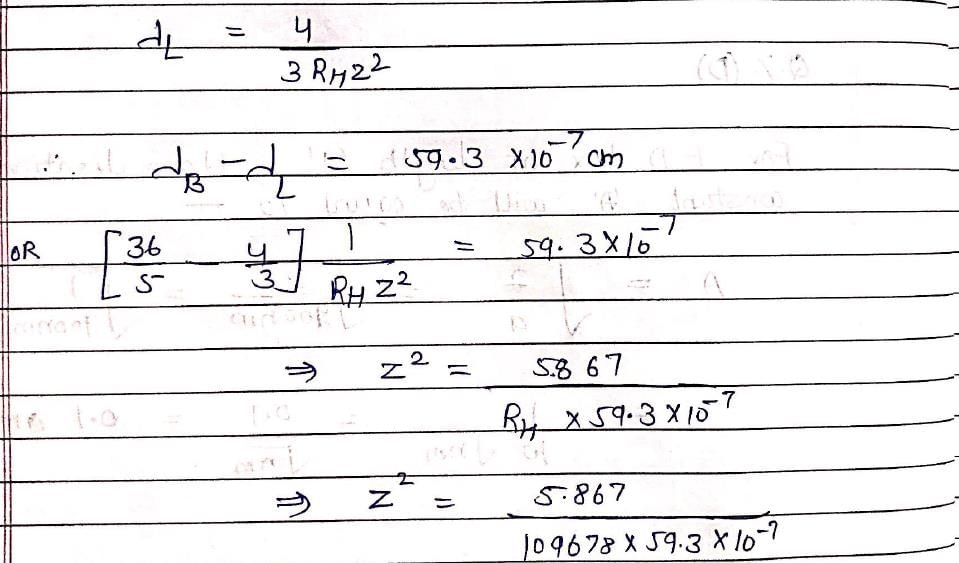 λ_L = 4 / 3 R_H z²
∴ λ_B - λ_L = 59.3 X10⁻⁷ cm
OR [36/5 - 4/3] 1 / R_H Z² = 59.3 X 10⁻⁷
⇒ Z² = 5.867 / R_H X 59.3 X 10⁻⁷
⇒ Z² = 5.867 / 109678 X 59.3 X 10⁻⁷